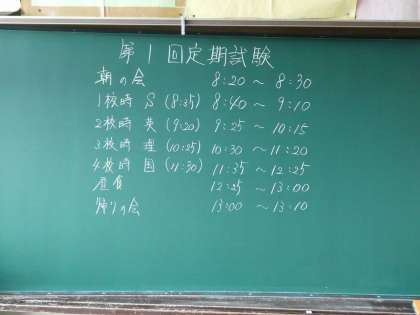 第1回定期試験
朝の会 8:20 ~ 8:30
1校時 S (8:35) 8:40 ~ 9:10
2校時 英 (9:20) 9:25 ~ 10:15
3校時 理 (10:25) 10:30 ~ 11:20
4校時 国 (11:30) 11:35 ~ 12:25
昼食 12:25 ~ 13:00
帰りの会 13:00 ~ 13:10